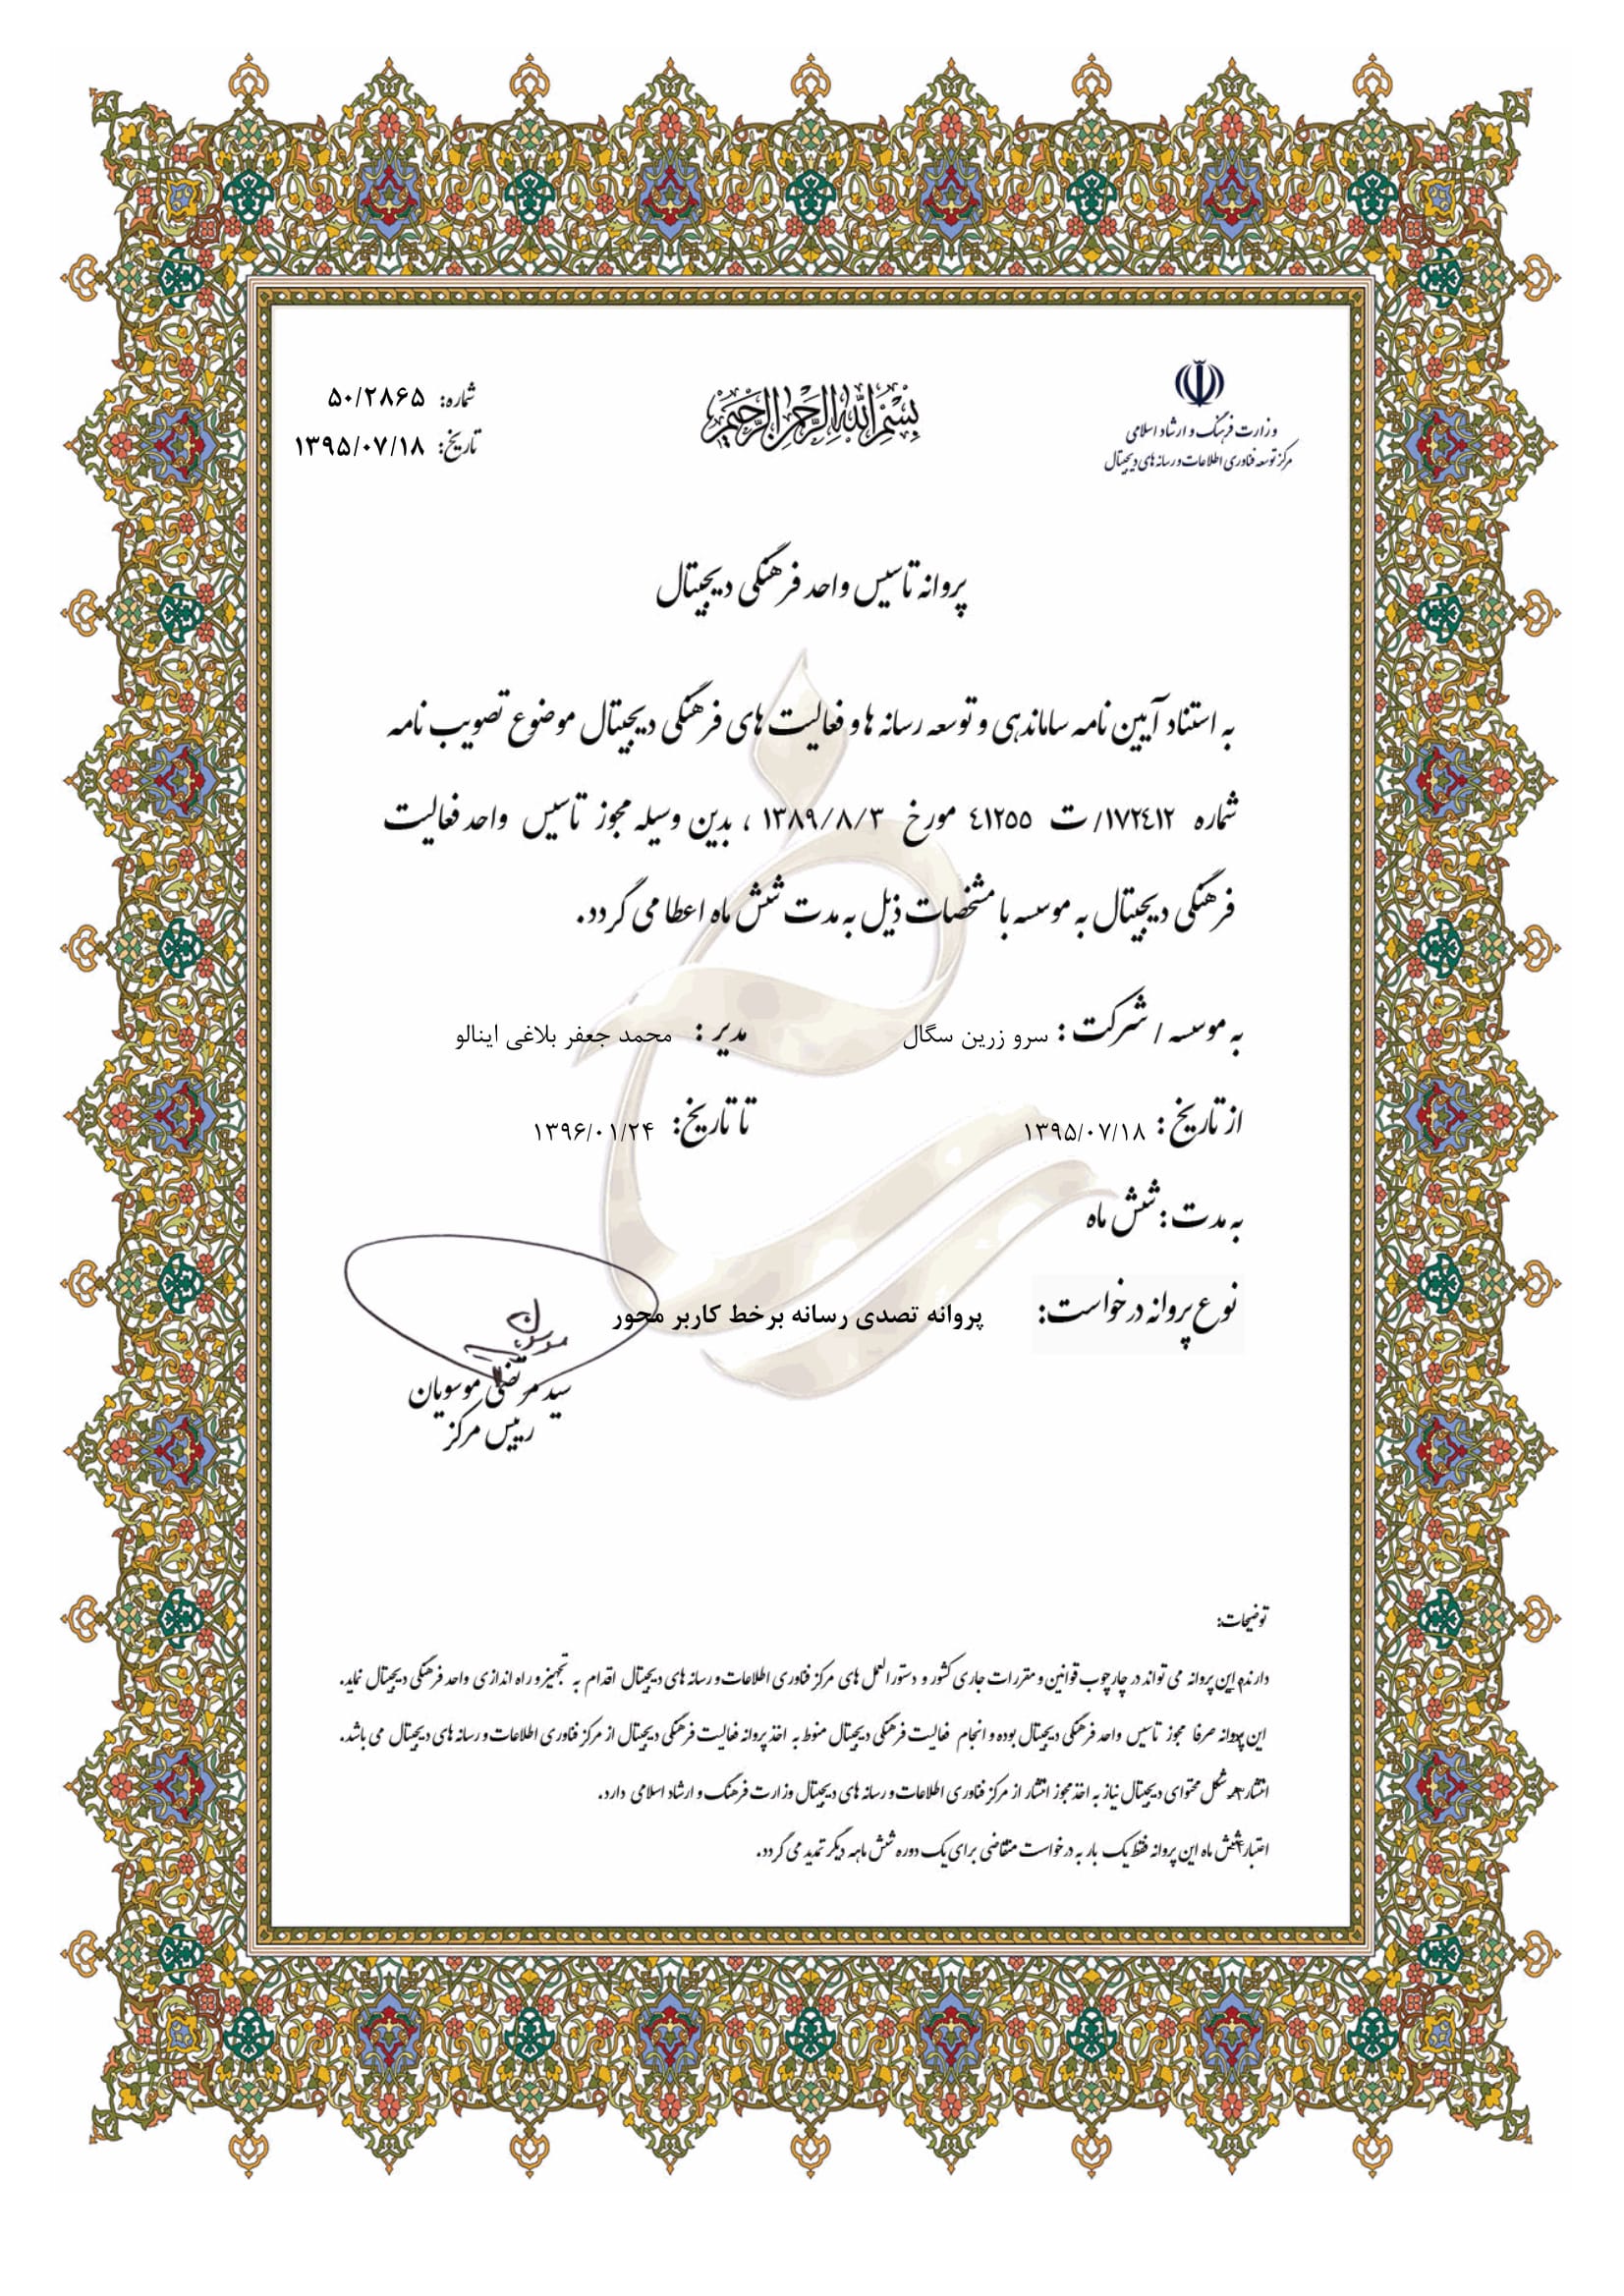 بسم الله الرحمن الرحیم
وزارت فرهنگ و ارشاد اسلامی
مرکز توسعه فناوری اطلاعات و رسانه های دیجیتال
شماره: ۵۰/۲۸۶۵
تاریخ: ۱۳۹۵/۰۷/۱۸
پروانه تاسیس واحد فرهنگی دیجیتال
به استناد آیین نامه ساماندهی و توسعه رسانه ها و فعالیت های فرهنگی دیجیتال موضوع تصویب نامه
شماره ۱۷۲٤۱۲/ ت ٤۱۲۵۵ مورخ ۱۳۸۹/۸/۳ ، بدین وسیله مجوز تاسیس واحد فعالیت
فرهنگی دیجیتال به موسسه با مشخصات ذیل به مدت شش ماه اعطا می گردد.
به موسسه / شرکت : سرو زرین سگال مدیر : محمد جعفر بلاغی اینالو
از تاریخ : ۱۳۹۵/۰۷/۱۸ تا تاریخ: ۱۳۹۶/۰۱/۲۴
به مدت : شش ماه
نوع پروانه درخواست: پروانه تصدی رسانه برخط کاربر محور
سید مرتضی موسویان
رییس مرکز
توضیحات:
دارنده این پروانه می تواند در چارچوب قوانین و مقررات جاری کشور و دستورالعمل های مرکز فناوری اطلاعات و رسانه های دیجیتال اقدام به تجهیز و راه اندازی واحد فرهنگی دیجیتال نماید.
این پروانه صرفا مجوز تاسیس واحد فرهنگی دیجیتال بوده و انجام فعالیت فرهنگی دیجیتال منوط به اخذ پروانه فعالیت فرهنگی دیجیتال از مرکز فناوری اطلاعات و رسانه های دیجیتال می باشد.
انتشار هر شکل محتوای دیجیتال نیاز به اخذ مجوز انتشار از مرکز فناوری اطلاعات و رسانه های دیجیتال وزارت فرهنگ و ارشاد اسلامی دارد.
اعتبار شش ماه این پروانه فقط یک بار به درخواست متقاضی برای یک دوره شش ماهه دیگر تمدید می گردد.